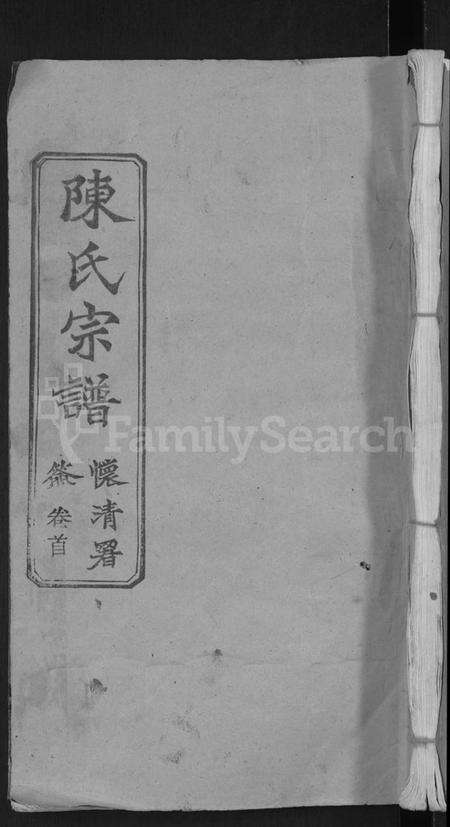 陳氏宗譜
懷清署
簽
卷首
FamilySearch